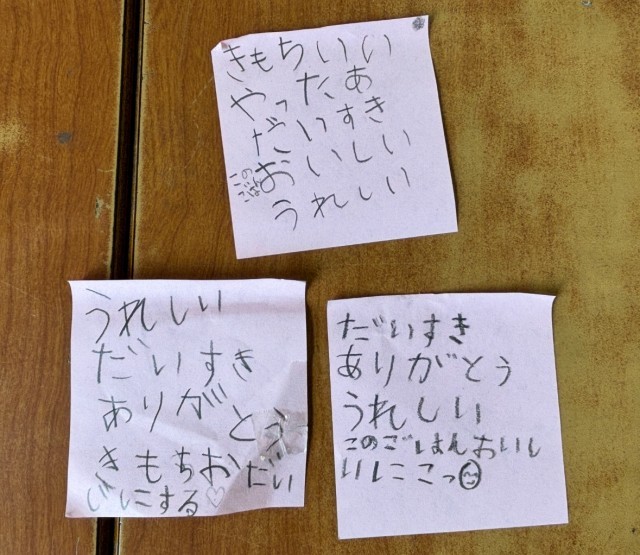 きもちいい
やったあ
だいすき
このごはん
おいしい
うれしい
うれしい
だいすき
ありがとう
きもちおだい
じにする♡
だいすき
ありがとう
うれしい
このごはんおいし
いしにこっ